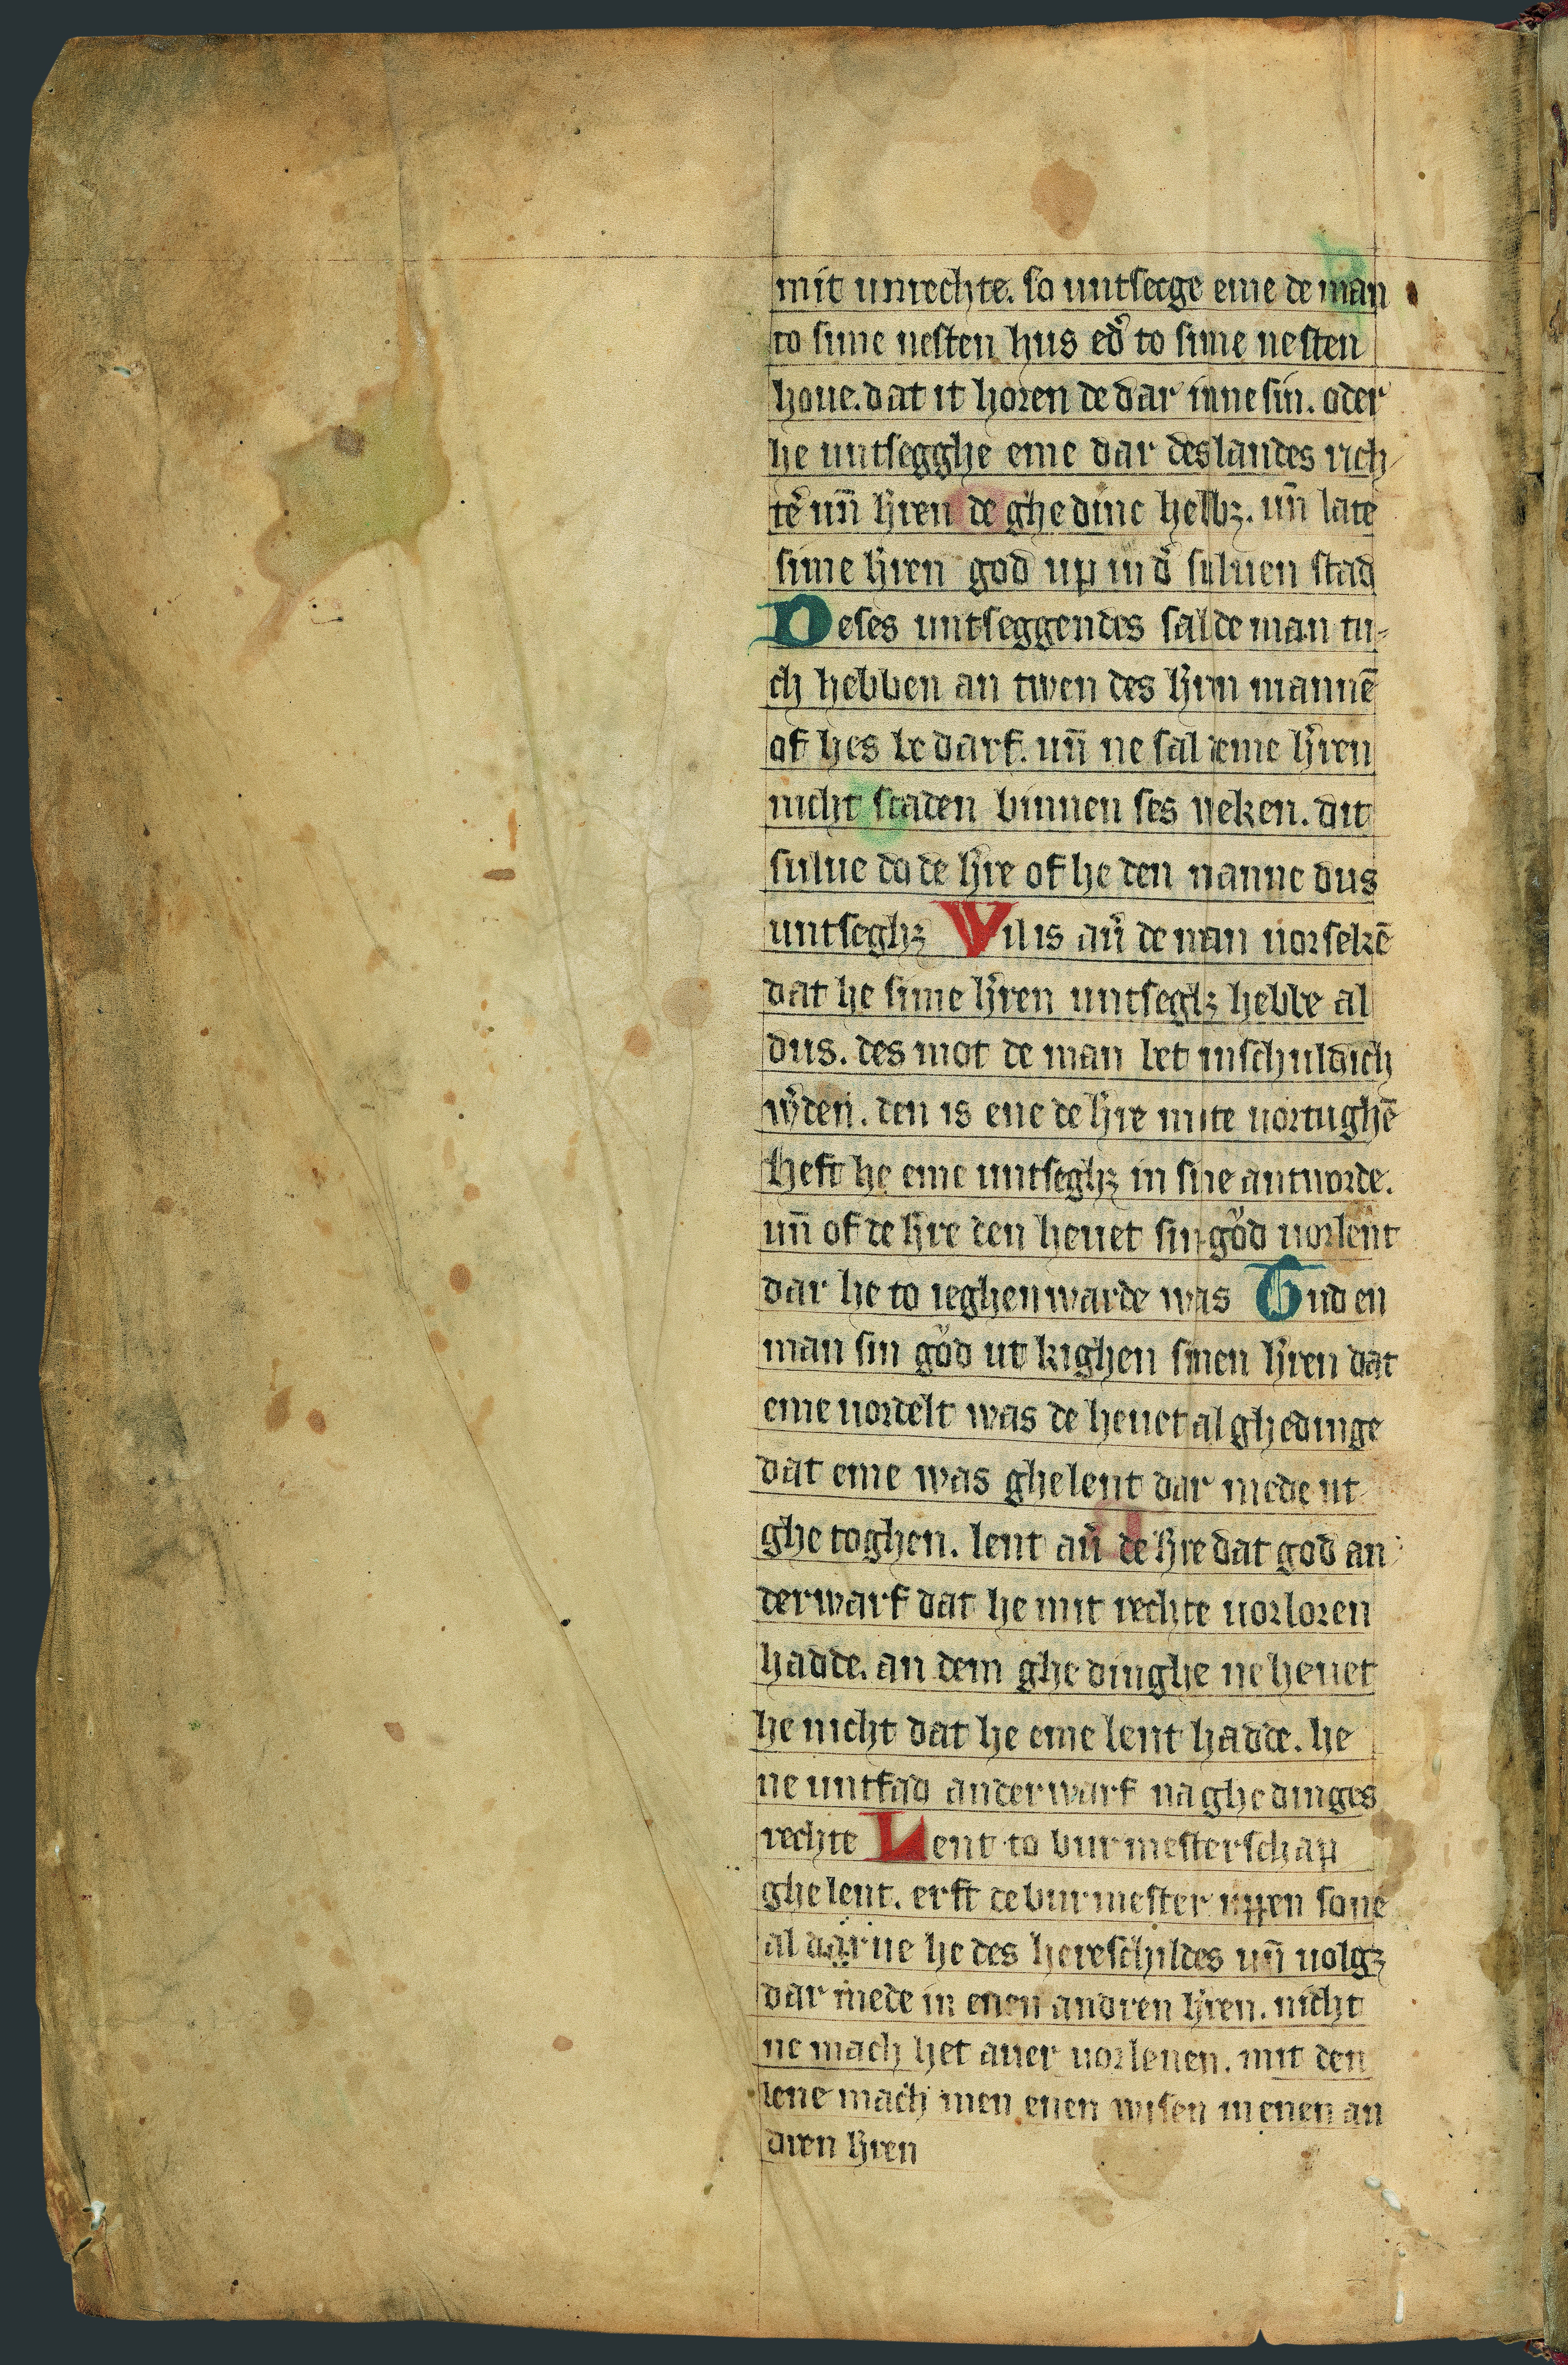 mit unrechte. so untsecge eme de man
to sime nesten hus ed͛ to sime nesten
houe. dat it horen de dar inne sin. oder
he untsegghe eme dar des landes rich
te͛ un̄ h͛ren de ghedinc hebbꝫ. un̄ late
sime h͛ren god up in d͛ suluen stad
Deses untseggendes sal de man tu-
ch hebben an twen des h͛rin mannē
of hes bedarf. un̄ ne sal eme h͛ren
nicht staden binnen ses weken. dit
sulue do de h͛re of he den manne dus
untseghꝫ Wil is au͛ de man uorsekē
dat he sime h͛ren untseghꝫ hebbe al
dus. des mot de man bet unschuldich
w͛den. den is ene de h͛re mute uortughē
heft he eme untseghꝫ in sine antworde.
un̄ of de h͛re den heuet sin god uorlent
dar he to ieghenwarde was Tud en
man sin god ut kighen sinen h͛ren dat
eme uordelt was de heuet al ghedinge
dat eme was ghelent dar mede ut
ghetoghen. lent au͛ de h͛re dat god an
derwarf dat he mit rechte uorloren
hadde. an dem ghedinghe ne heuet
he nicht dat he eme lent hadde. he
ne untfad anderwarf na ghedinges
rechte Lent to burmesterschap
ghelent. erft de burmester uppen sone
al darue he des hereschildes un̄ uolgꝫ
dar mede in enen andren h͛ren. nicht
ne mach het auer uorlenen. mit den
lene mach men enen wisen in enen an
dren h͛ren